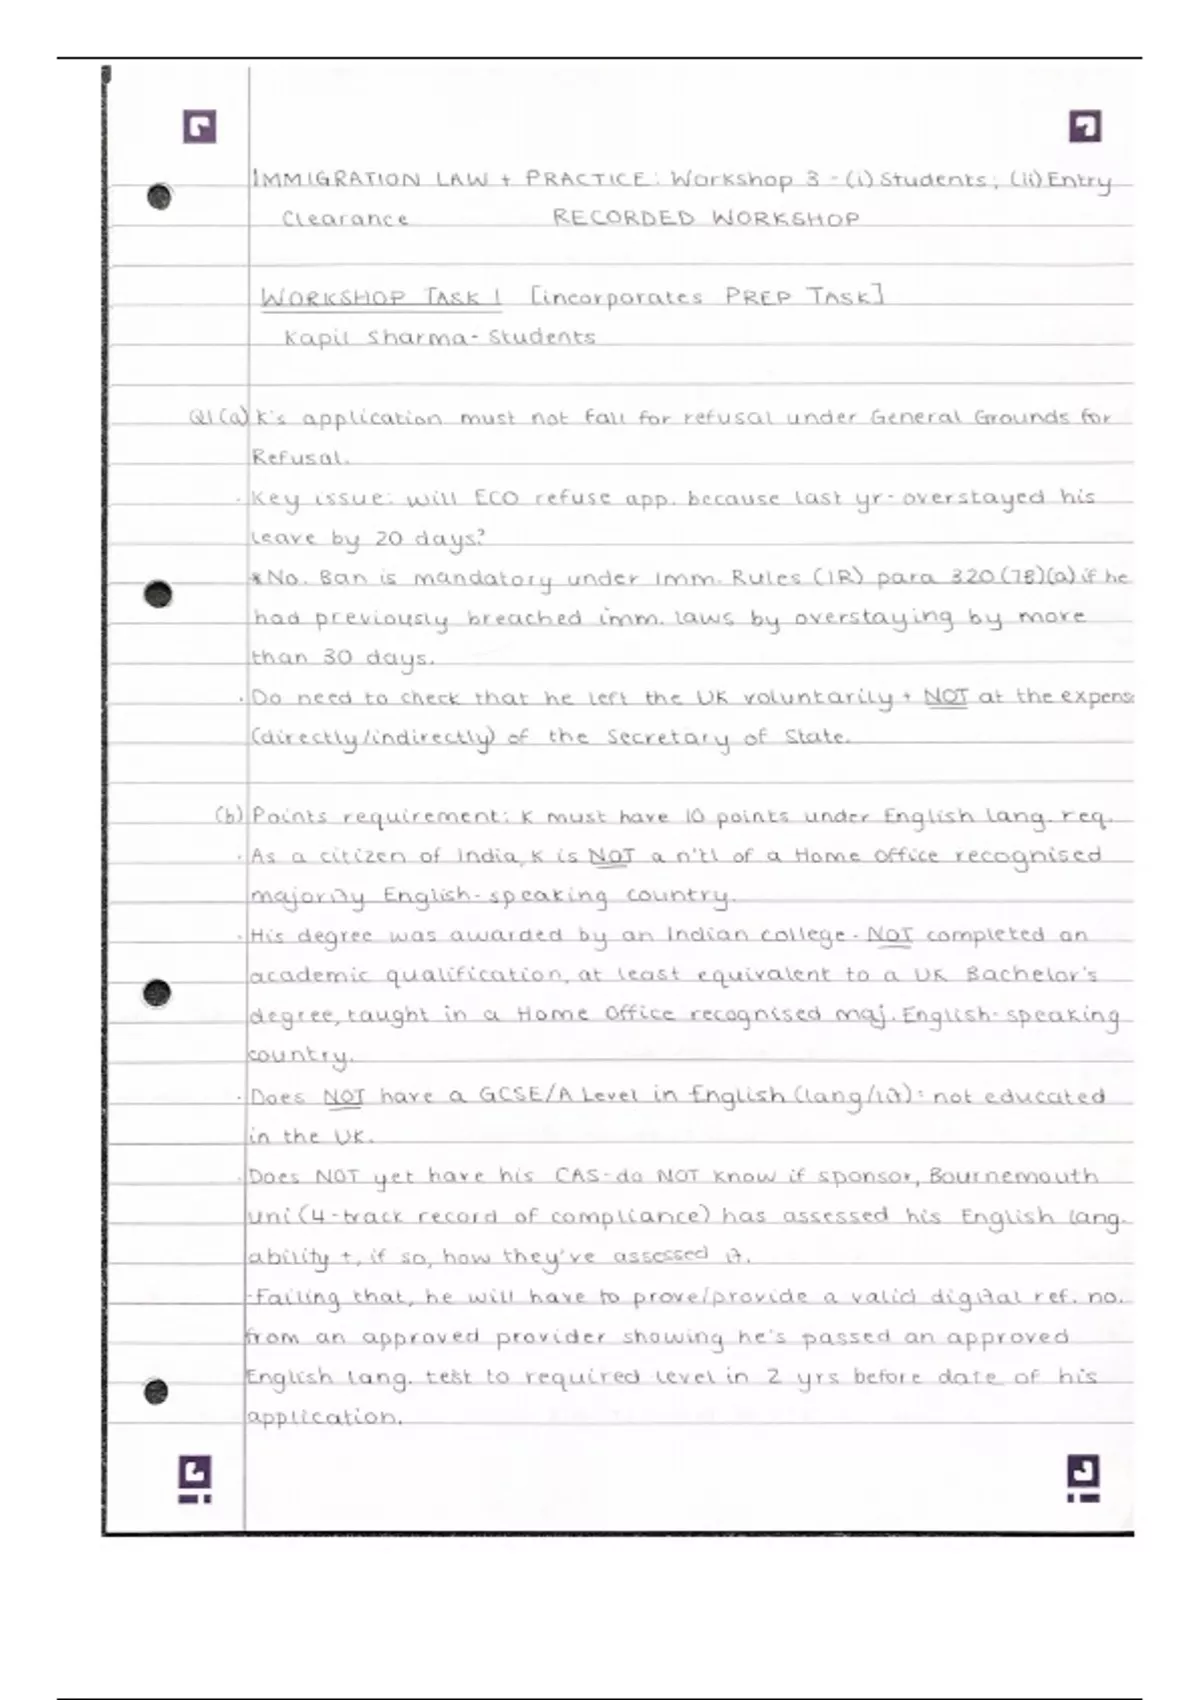 IMMIGRATION LAW + PRACTICE: Workshop 3 - (i) Students; (ii) Entry
Clearance RECORDED WORKSHOP
WORKSHOP TASK 1 [incorporates PREP TASK]
Kapil Sharma - Students
Q1(a) K's application must not fall for refusal under General Grounds for
Refusal.
· Key issue: will ECO refuse app. because last yr - overstayed his
leave by 20 days?
* No. Ban is mandatory under Imm. Rules (IR) para 320(7B)(a) if he
had previously breached imm. laws by overstaying by more
than 30 days.
· Do need to check that he left the UK voluntarily + NOT at the expense
(directly/indirectly) of the Secretary of State.
(b) Points requirement: K must have 10 points under English lang. req.
· As a citizen of India, K is NOT a n'tl of a Home Office recognised
majority English-speaking country.
· His degree was awarded by an Indian college - NOT completed an
academic qualification, at least equivalent to a UK Bachelor's
degree, taught in a Home Office recognised maj. English-speaking
country.
· Does NOT have a GCSE/A Level in English (lang/lit): not educated
in the UK.
· Does NOT yet have his CAS - do NOT know if sponsor, Bournemouth
uni (4-track record of compliance) has assessed his English lang.
ability +, if so, how they've assessed it.
· Failing that, he will have to prove/provide a valid digital ref. no.
from an approved provider showing he's passed an approved
English lang. test to required level in 2 yrs before date of his
application.